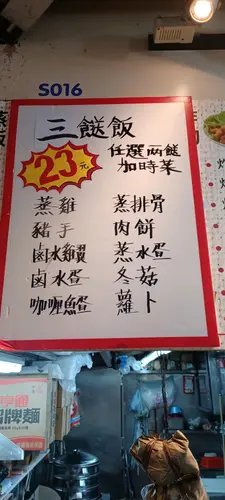 S016
三餸飯
23元
任選兩餸
加時菜
蒸雞
豬手
鹵水雞翼
鹵水蛋
咖哩魚蛋
蒸排骨
肉餅
蒸水蛋
冬菇
蘿卜
牌麵